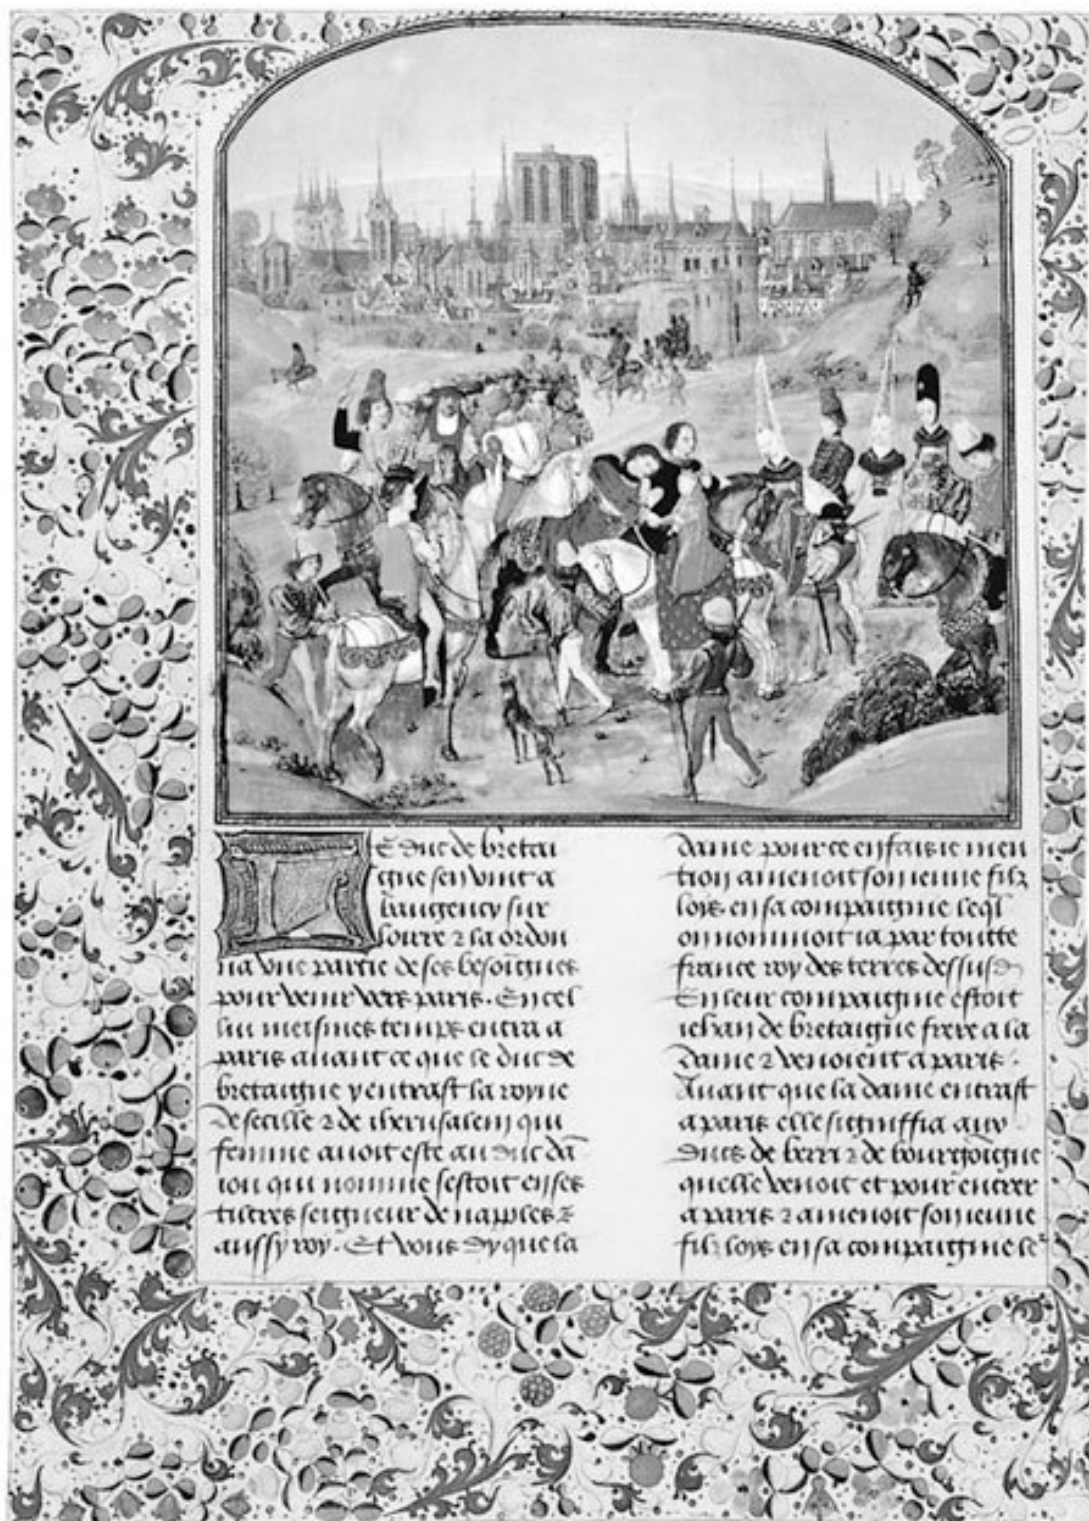 Le duc de bretai
gne sen vint a
baugency sur
loirre ⁊ la ordon
na vne partie de ses besoignes
pour venir vers paris. En cel
lui meismes temps entra a
paris auant ce que le duc de
bretaigne y entrast la royne
de secille ⁊ de iherusalem qui
femme auoit este au duc dā
iou qui nomme sestoit en ses
tiltres seigneur de naples ⁊
aussy roy. Et vous dy que la
dame pour ce en fais ie men
tion amenoit son ieune filz
loys en sa compaignie leql̄
on nommoit ia par toutte
france roy des terres dessusd
En leur compaignie estoit
iehan de bretaigne frere a la
dame ⁊ venoient a paris.
Auant que la dame entrast
a paris elle signiffia aux
ducs de berri ⁊ de bourgoingne
quelle venoit et pour entrer
a paris ⁊ amenoit son ieune
filz loys en sa compaignie le